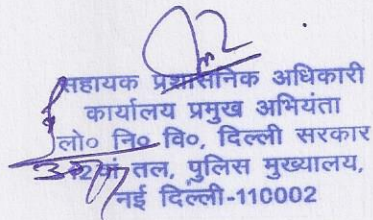 सहायक प्रशासनिक अधिकारी
कार्यालय प्रमुख अभियंता
लो० नि० वि०, दिल्ली सरकार
तल, पुलिस मुख्यालय,
नई दिल्ली-110002